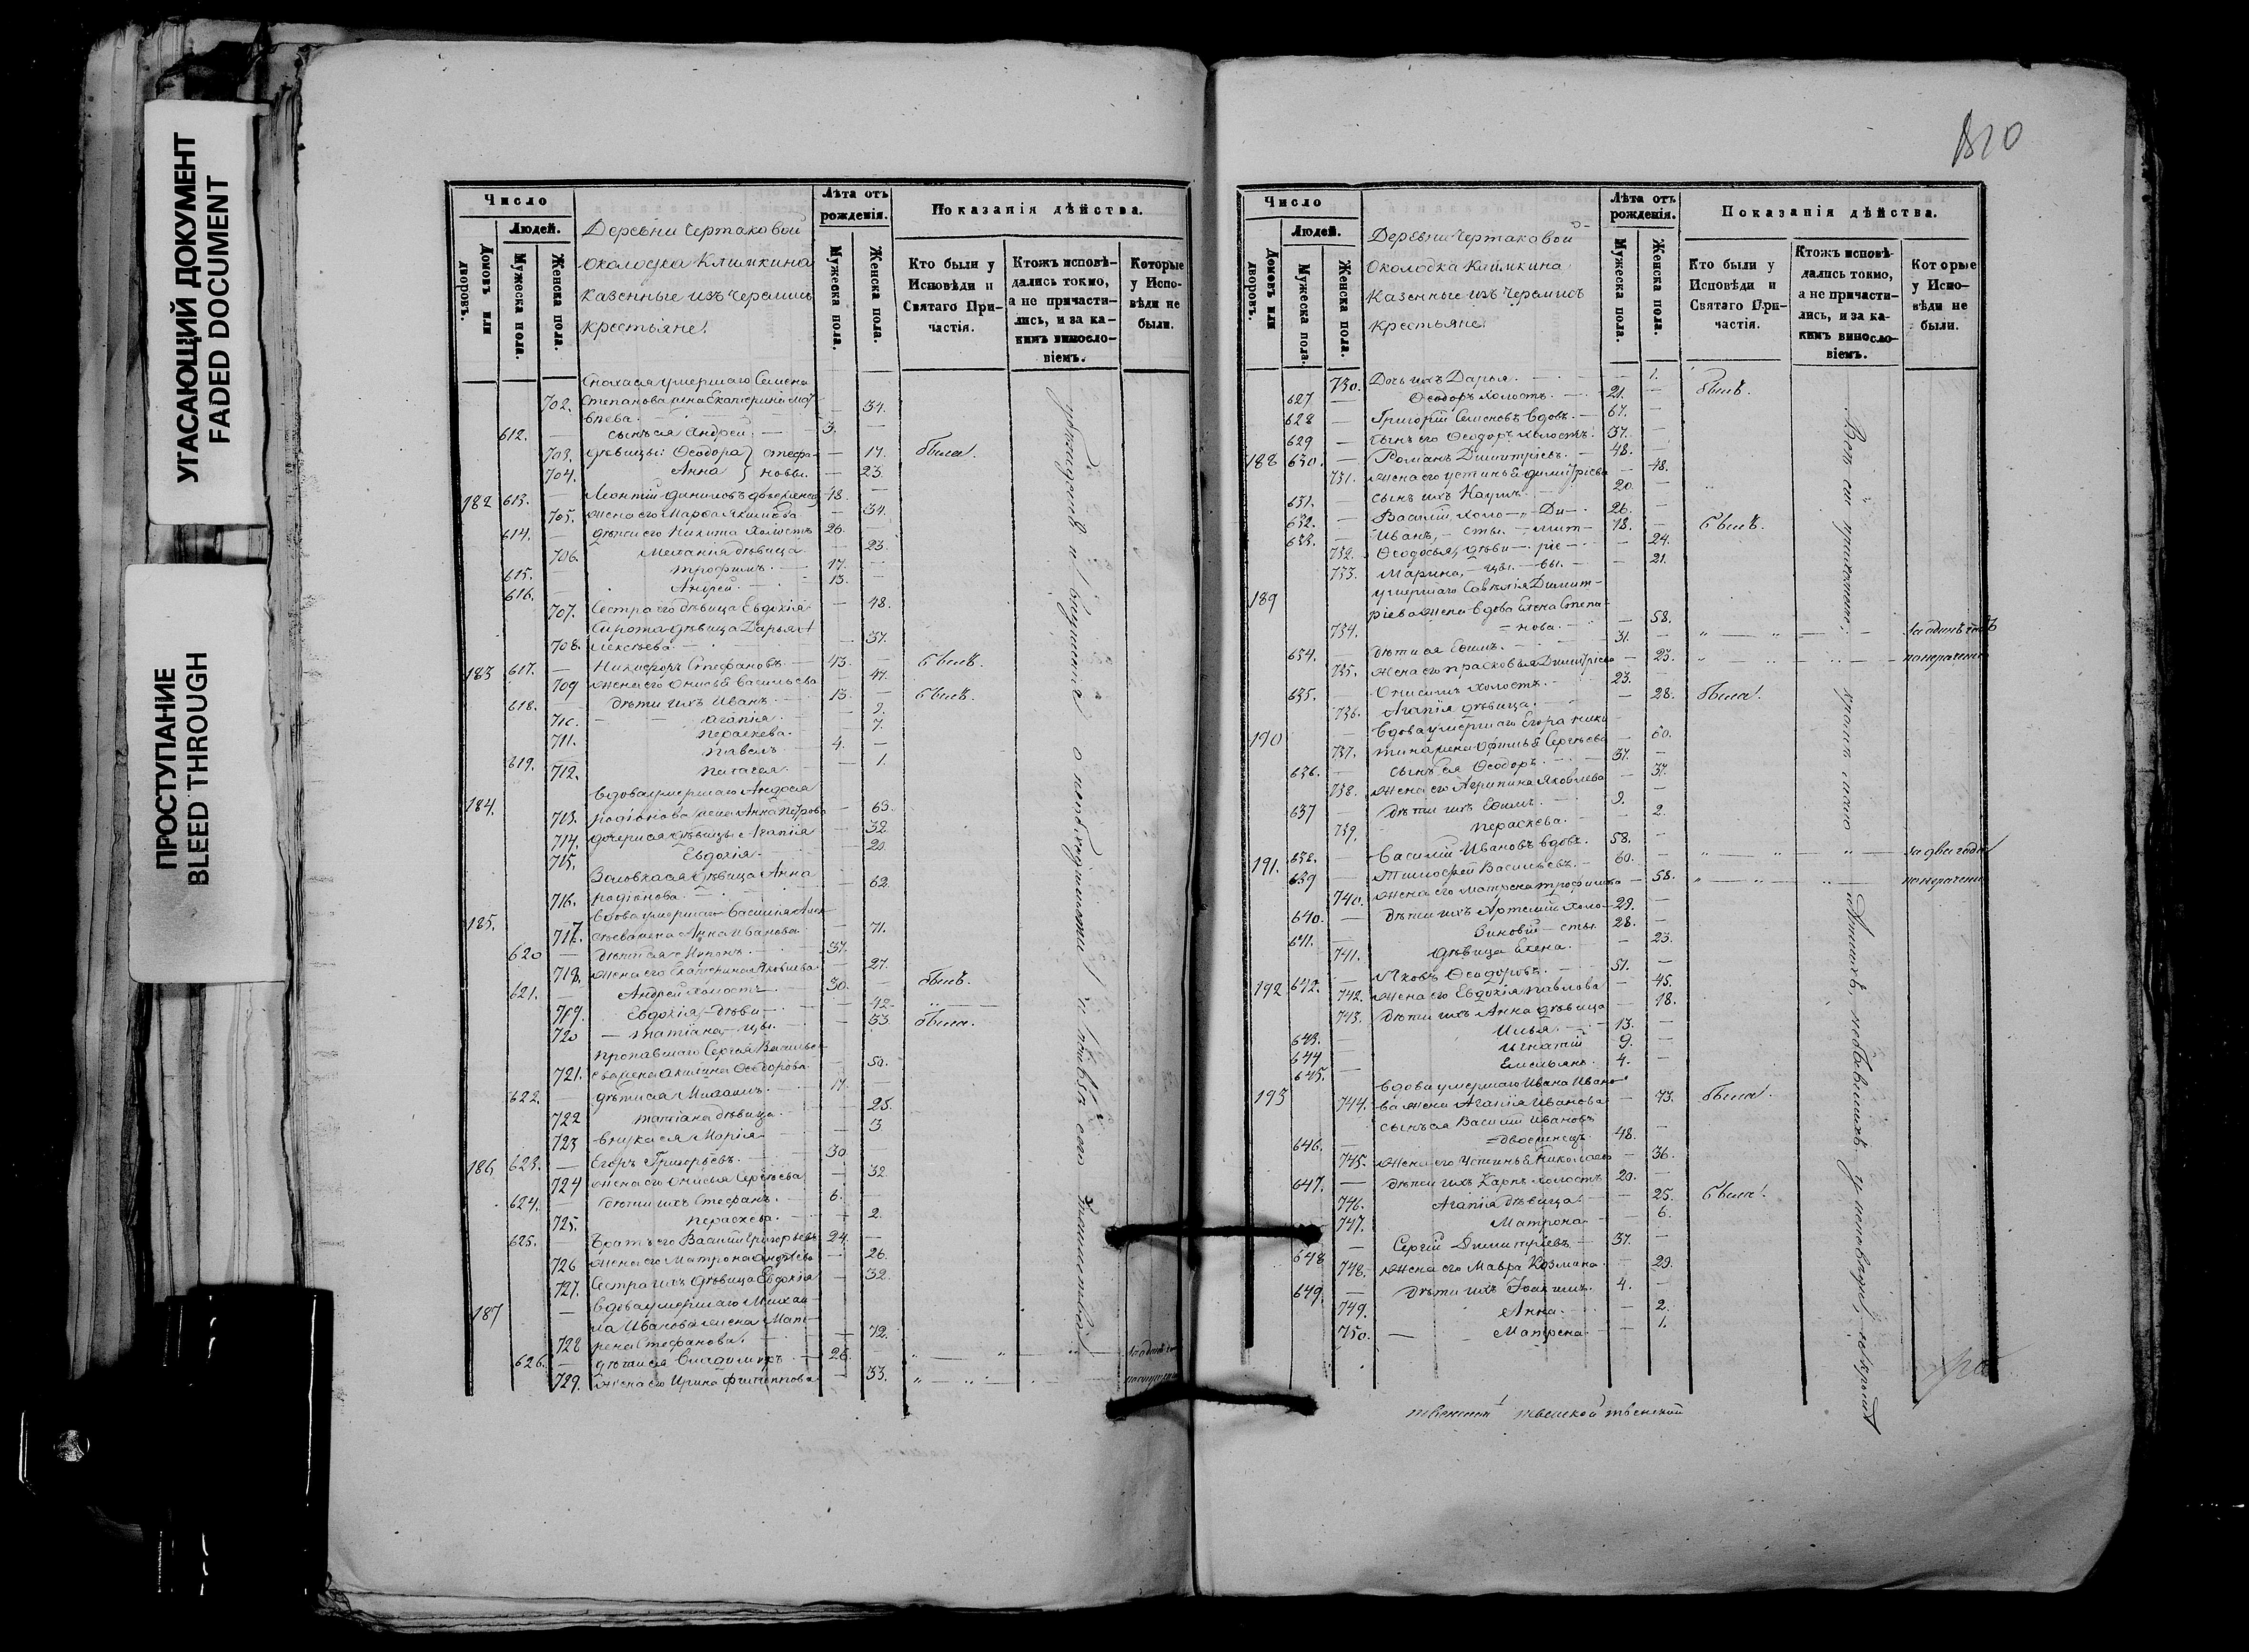 УГАСАЮЩИЙ ДОКУМЕНТ
FADED DOCUMENT
ПРОСТУПАНИЕ
BLEED THROUGH
Число
Людей.
Домовъ или дворовъ.
Мужеска пола.
Женска пола.
Деревни Чертаковой
околодка Кляшкина
казенные изъ черемисъ
крестьяне.
Лѣта отъ рожденія.
Мужеска пола.
Женска пола.
Показанія дѣйства.
Кто были у Исповѣди и Святаго Причастія.
Ктожъ исповѣдались токмо, а не причастились, и за какимъ винословіемъ.
Которые у Исповѣди не были.
Сноха ея умершаго Семена
702. Степанова жена Екатерина Мат — 34.
вѣева.
612. — сынъ ея Андрей. 3. —
703. дѣвицы: Ѳеодора } Стефа- — 17. была.
704. Анна } новы. — 23.
182 613. — Леонтій Даниловъ 48. —
705. жена его Марѳа Якимова — 34.
614. — дѣти его Никита холостъ 26.
706. Меланія дѣвица — 23.
615. — Трофимъ. 17. —
616. — Андрей. 13. —
707. Сестра его дѣвица Евдокія — 48.
Сирота дѣвица Дарья А
708. лексѣева. — 37.
183 617. — Никифоръ Стефановъ. 43. — былъ.
709 жена его Анисья Васильева — 47.
618. — дѣти ихъ Иванъ. 13. — былъ.
710. Агапія. — 9.
711. Пераскева. — 7.
619. — Павелъ 4. —
712. Пелагея. — 1.
184. Вдова умершаго Андрея
713. Родіонова жена Анна Петрова — 63.
714. дочери ея дѣвицы Агапія — 32
715. Евдокія. — 20
Золовка ея дѣвица Анна
716. Родіонова. — 62.
185. Вдова умершаго Василія Алек
717. сѣева жена Анна Иванова. — 71.
620 — дѣти ея Миронъ. 37.
718. жена его Екатерина Яковлева. — 27.
621. — Андрей холостъ. 30. — былъ.
719. Евдокія, — дѣви — — 42.
720 — Татіана — цы. — 33. была.
пропавшаго Сергѣя Василье
721. ва жена Акилина Ѳеодорова. — 50.
622. — дѣти ея Михаилъ. 17. —
722 Татіана дѣвица. — 25.
723 внука ея Марія — 3
186 623. — Егоръ Григорьевъ. 30 —
724 жена его Анисья Сергѣева — 32.
624. — дѣти ихъ Стефанъ. 6. —
725. Пераскева. — 2.
625. — Братъ его Василій Григорьевъ 24. —
726 жена его Матрона Андреева — 26.
727. Сестра ихъ дѣвица Евдокія — 32.
187 — Вдова умершаго Михаи
ла Иванова жена Мат-
728 рена Стефанова. — 72.
626. — дѣти ея Владимиръ. 26. —
729. жена его Ирина Филиппова — 33.
Число
Людей.
Домовъ или дворовъ.
Мужеска пола.
Женска пола.
Деревни Чертаковой
Околодка Кляшкина
Казенные изъ черемисъ
крестьяне.
Лѣта отъ рожденія.
Мужеска пола.
Женска пола.
Показанія дѣйства.
Кто были у Исповѣди и Святаго Причастія.
Ктожъ исповѣдались токмо, а не причастились, и за какимъ винословіемъ.
Которые у Исповѣди не были.
730. Дочь ихъ Дарья. — 1.
627 — Ѳеодоръ холостъ. 21. — былъ.
628 — Григорій Семеновъ вдовъ. 67. —
629 — Сынъ его Ѳеодоръ холостъ. 37. —
188 630. — Романъ Димитріевъ. 48. —
731. жена его Устинья Димитріева — 48.
631. — сынъ ихъ Наумъ. 20. —
632. — Василій, холо — Ди — 26. —
633. — Иванъ, — сты. — мит — 18. — былъ.
732. Ѳеодосья, дѣви — ріе — — 24.
733. Марина, — цы. — вы. — 21.
189 умершаго Савелія Димит-
ріева жена вдова Елена Степа-
734. нова. — 58. за одинъ годъ
634. — дѣти ея Ефимъ. 31. —
735. жена его Прасковья Димитріева — 23. по нерачению
635. — Онисимъ холостъ. 23. —
736. Агапія дѣвица. — 28. была.
190 Вдова умершаго Егора Ники
737. тина жена Офимья Сергѣева — 60.
636. — сынъ ея Ѳеодоръ. 37. —
738. жена его Агрипина Яковлева — 37.
637 — дѣти ихъ Ефимъ. 9. —
739. Пераскева. — 2.
191. 638. — Василій Ивановъ вдовъ. 58. — за два года
639 — Тимофей Васильевъ. 60. —
740. жена его Матрена Трофимова — 58. по нерачению
640. — дѣти ихъ Артемій холо- 29. —
641. — Зиновій — сты. 28. —
741. дѣвица Елена. — 23.
192 642. — Яковъ Ѳеодоровъ. 51. —
742. жена его Евдокія Павлова — 45.
743. дѣти ихъ Анна дѣвица — 18.
643. — Илья. 13. —
644 — Игнатій 9. —
645. — Емельянъ. 4. —
193 Вдова умершаго Ивана Ивано
744. ва жена Агапія Иванова — 73. была.
сынъ ея Василій Ивановъ
646. — двоеженецъ 48. —
745. жена его Устинья Николаева — 36.
647. — дѣти ихъ Карпъ холостъ 20. —
746. Агапія дѣвица. — 25. была.
747. Матрона. — 6.
648 — Сергій Димитріевъ 37. —
748. жена его Мавра Козмина. — 29.
649. — дѣти ихъ Іоакимъ. 4. —
749. Анна. — 2.
750. — Матрена. — 1.
Всѣ сіи прихожане